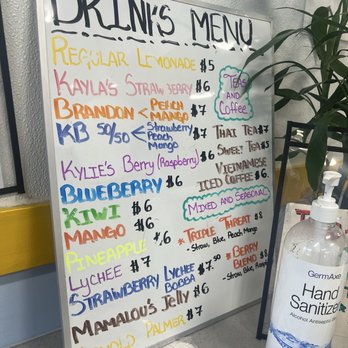 DRINKS MENU
REGULAR LEMONADE $5
KAYLA'S STRAWBERRY $6
BRANDON < PEACH MANGO $7
KB 50/50 < Strawberry Peach Mango $7
KYLIE'S BERRY (RASPBERRY) $6
BLUEBERRY $6
KIWI $6
MANGO $6
PINEAPPLE $6
LYCHEE $7
STRAWBERRY LYCHEE BOBBA $7.50
MAMALOU'S JELLY $6
PALMER $7
TEAS AND COFFEE
THAI TEA $7
SWEET TEA $5
VIETNAMESE ICED COFFEE $6
MIXED AND SEASONAL
* TRIPLE THREAT $8
- Straw, Blue, Peach Mango
* BERRY BLEND $8
- Straw, Blue,
GermAxe
Hand
Sanitizer